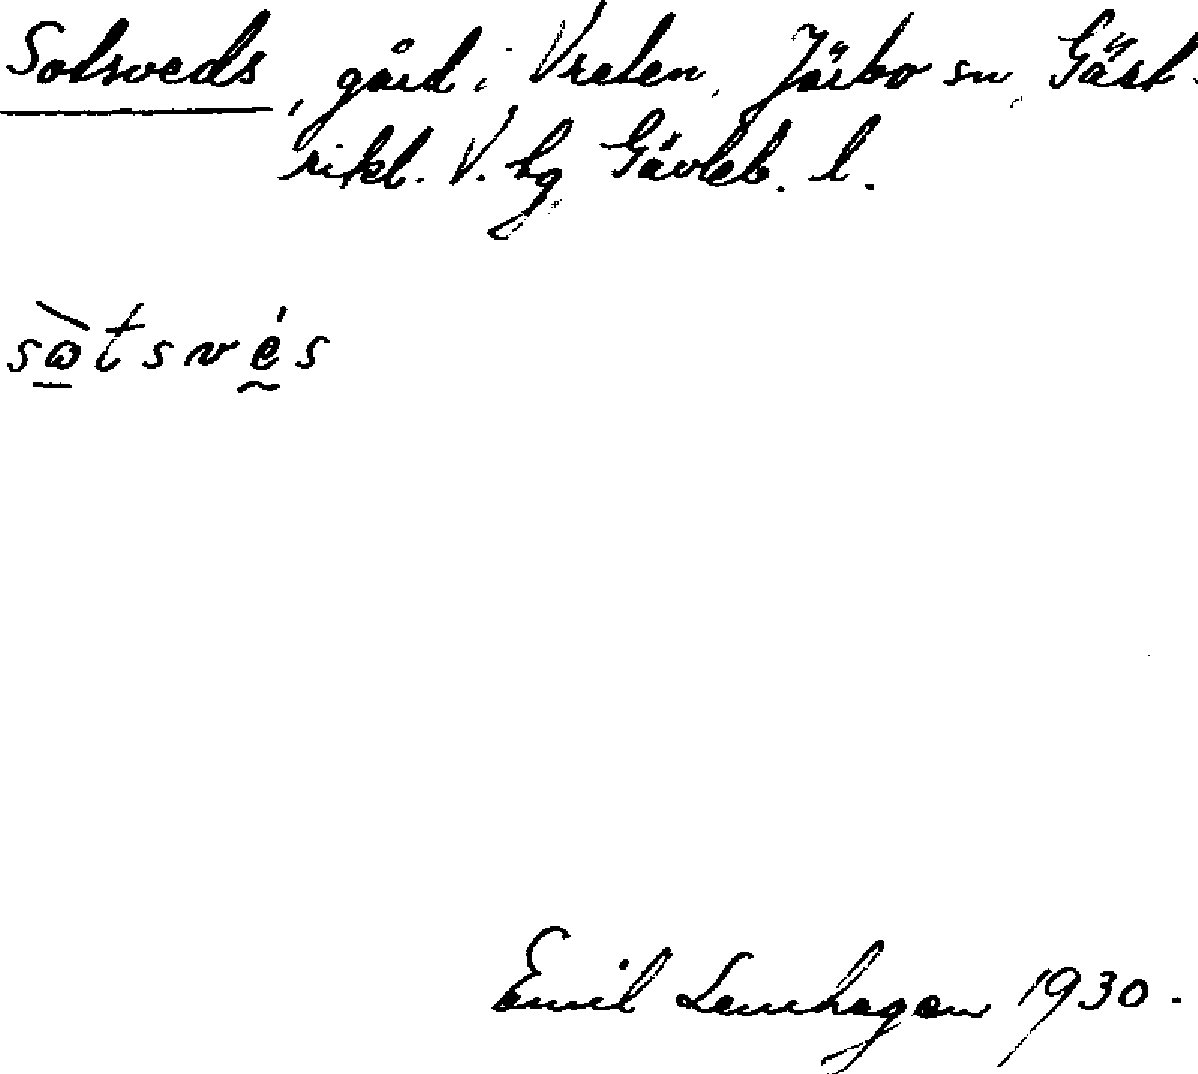 Sotsveds, gård i Vreten, Järbo sn, Gäst-
rikl. V. hg, Gävleb. l.
sὼtsvés
Emil Lenhagen 1930.